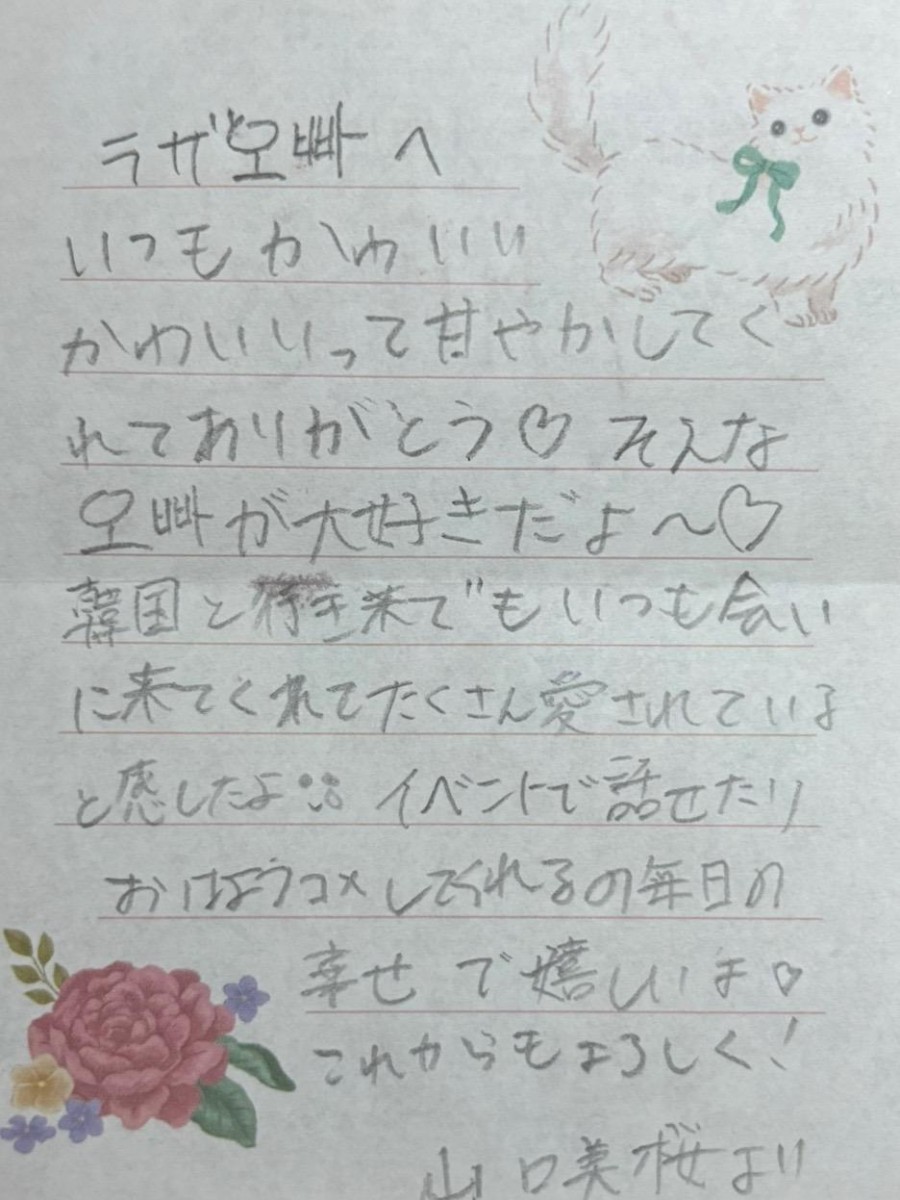 ラザ오빠へ
いつもかわいい
かわいいって甘やかしてく
れてありがとう♡ そんな
오빠が大好きだよ〜♡
韓国と行き来でもいつも会い
に来てくれてたくさん愛されている
と感じたよ イベントで話せたり
おはようコメしてくれるの毎日の
幸せで嬉しいよ♡
これからもよろしく!
山口美桜より